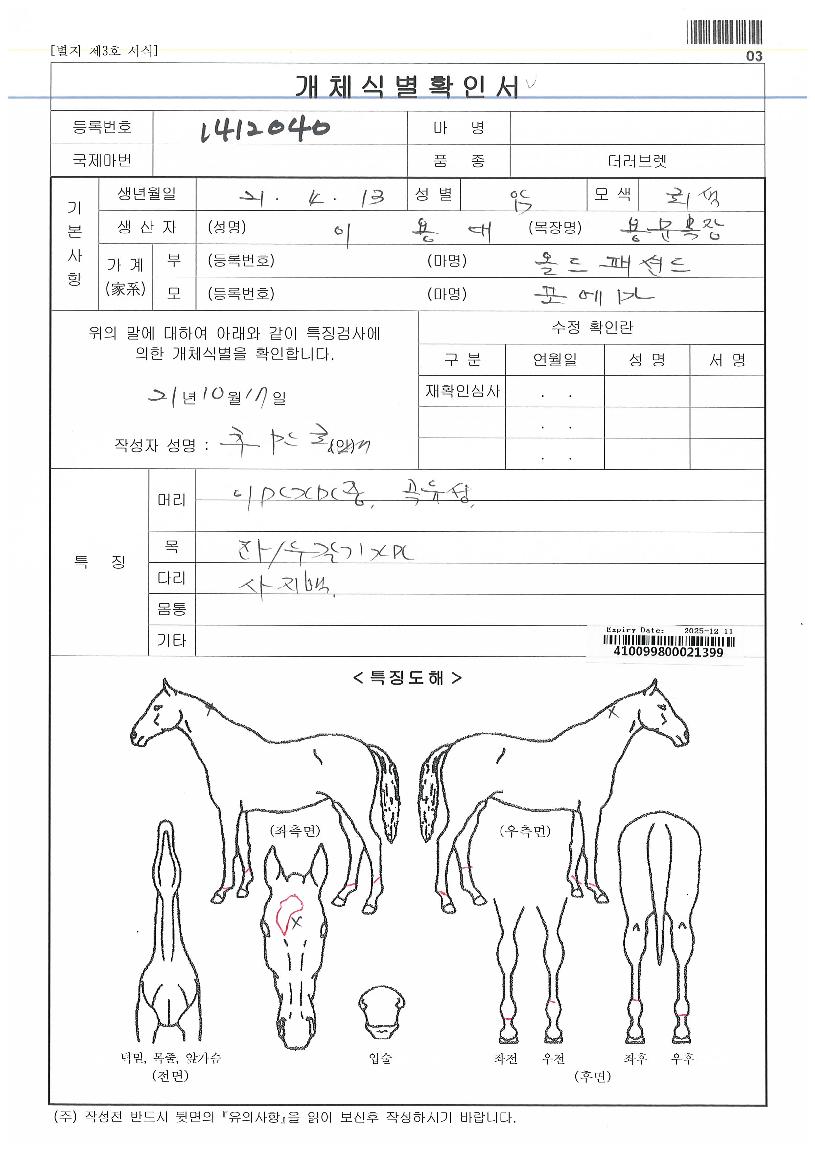 [별지 제3호 서식]
03
개체식별확인서
등록번호 1412040 마 명
국제마번 품 종 더러브렛
기본사항
생년월일 21. 4. 13 성별 암 모색 회색
생 산 자 (성명) 이 용 대 (목장명) 용문목장
가 계 (家系) 부 (등록번호) (마명) 올드패션드
모 (등록번호) (마명) 포에마
위의 말에 대하여 아래와 같이 특징검사에
의한 개체식별을 확인합니다.
21년 10월 17일
작성자 성명 :
수정 확인란
구 분 연월일 성 명 서 명
재확인심사 . .
. .
. .
특 징
머리
목
다리 사지백.
몸통
기타
Expiry Date: 2025-12-11
410099800021399
< 특징도해 >
(좌측면) (우측면)
턱밑, 목줄, 앞가슴 입술 좌전 우전 좌후 우후
(전면) (후면)
(주) 작성전 반드시 뒷면의 『유의사항』을 읽어 보신후 작성하시기 바랍니다.